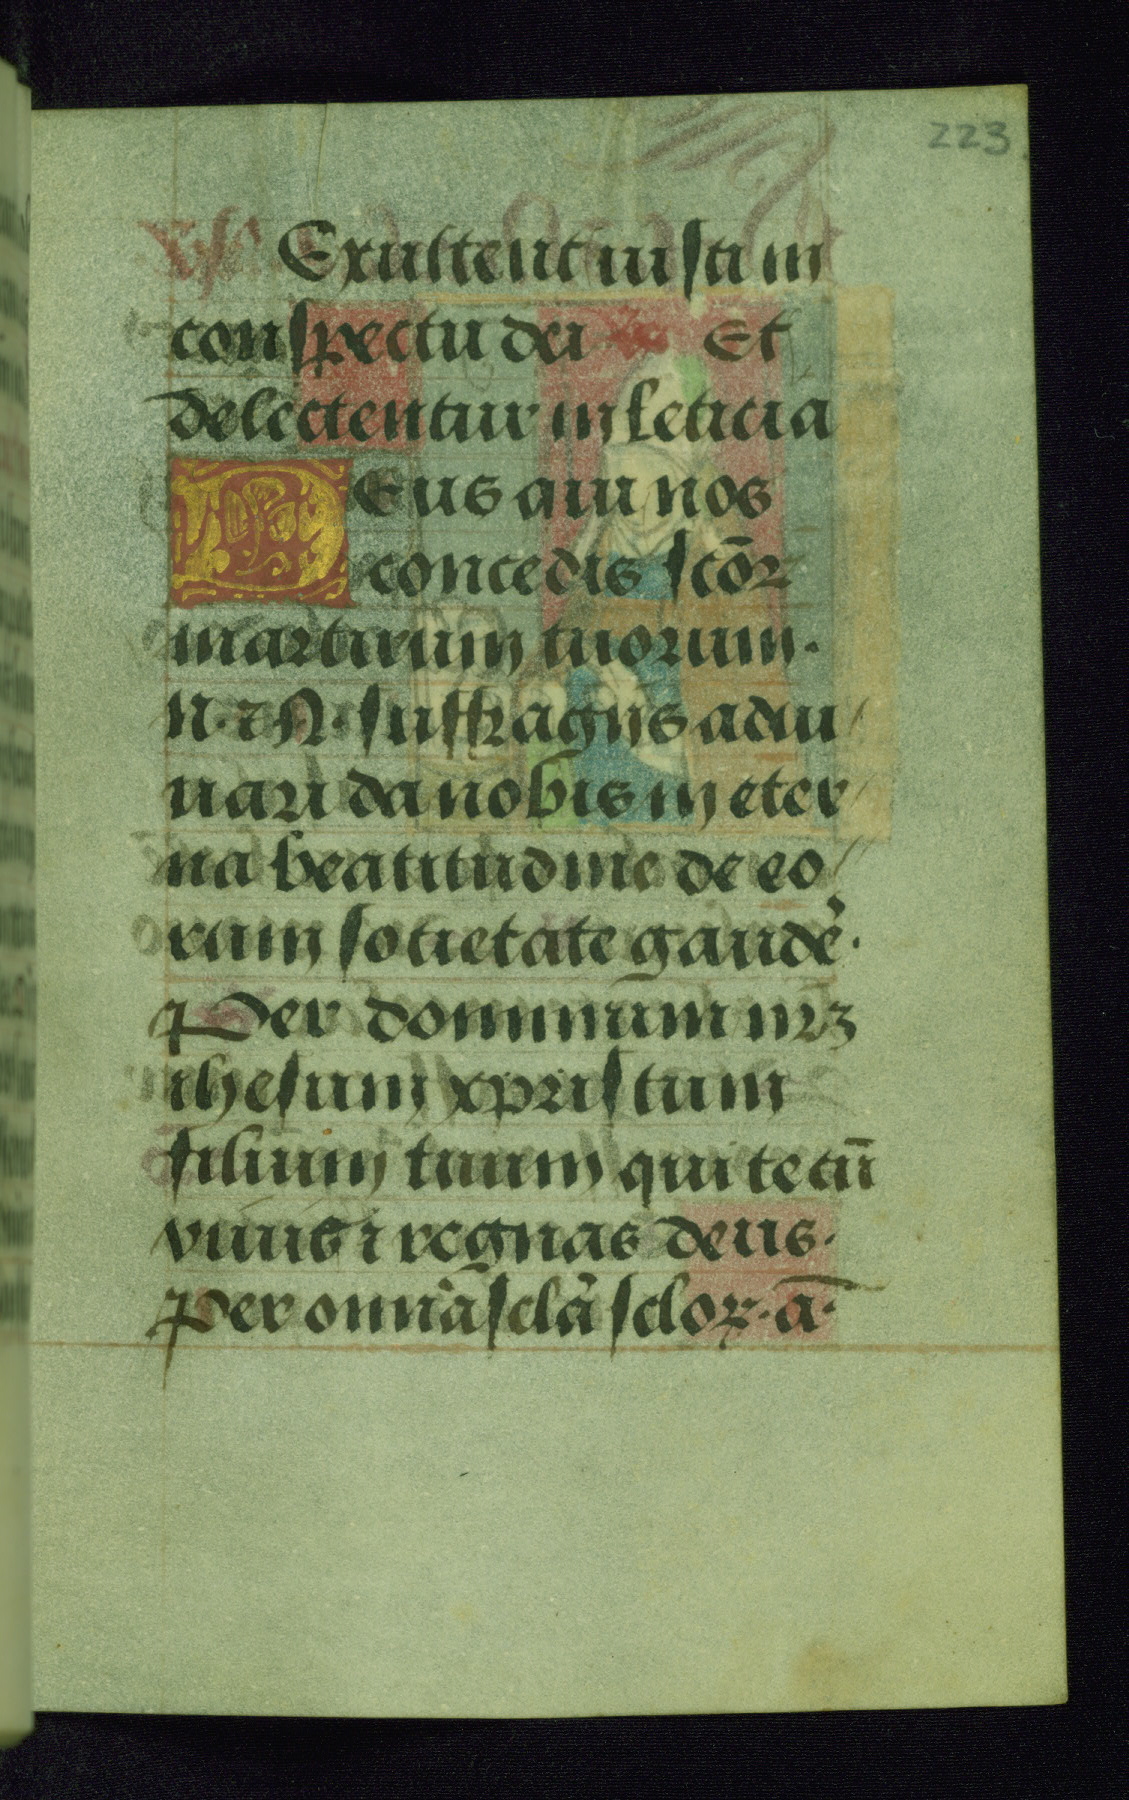 223
Vs Exultent iusti in
conspectu dei R Et
delectentur in leticia
Deus qui nos
concedis scōꝝ
martirum tuorum.
N. ⁊ N. suffragijs adiu/
uari da nobis in eter/
na beatitudine de eo/
rum societate gaudē.
Per dominum nrꝫ
ihesum xpristum
filium tuum qui tecū
viuis ⁊ regnas deus.
Per omnīa sclā scloꝝ. ā.